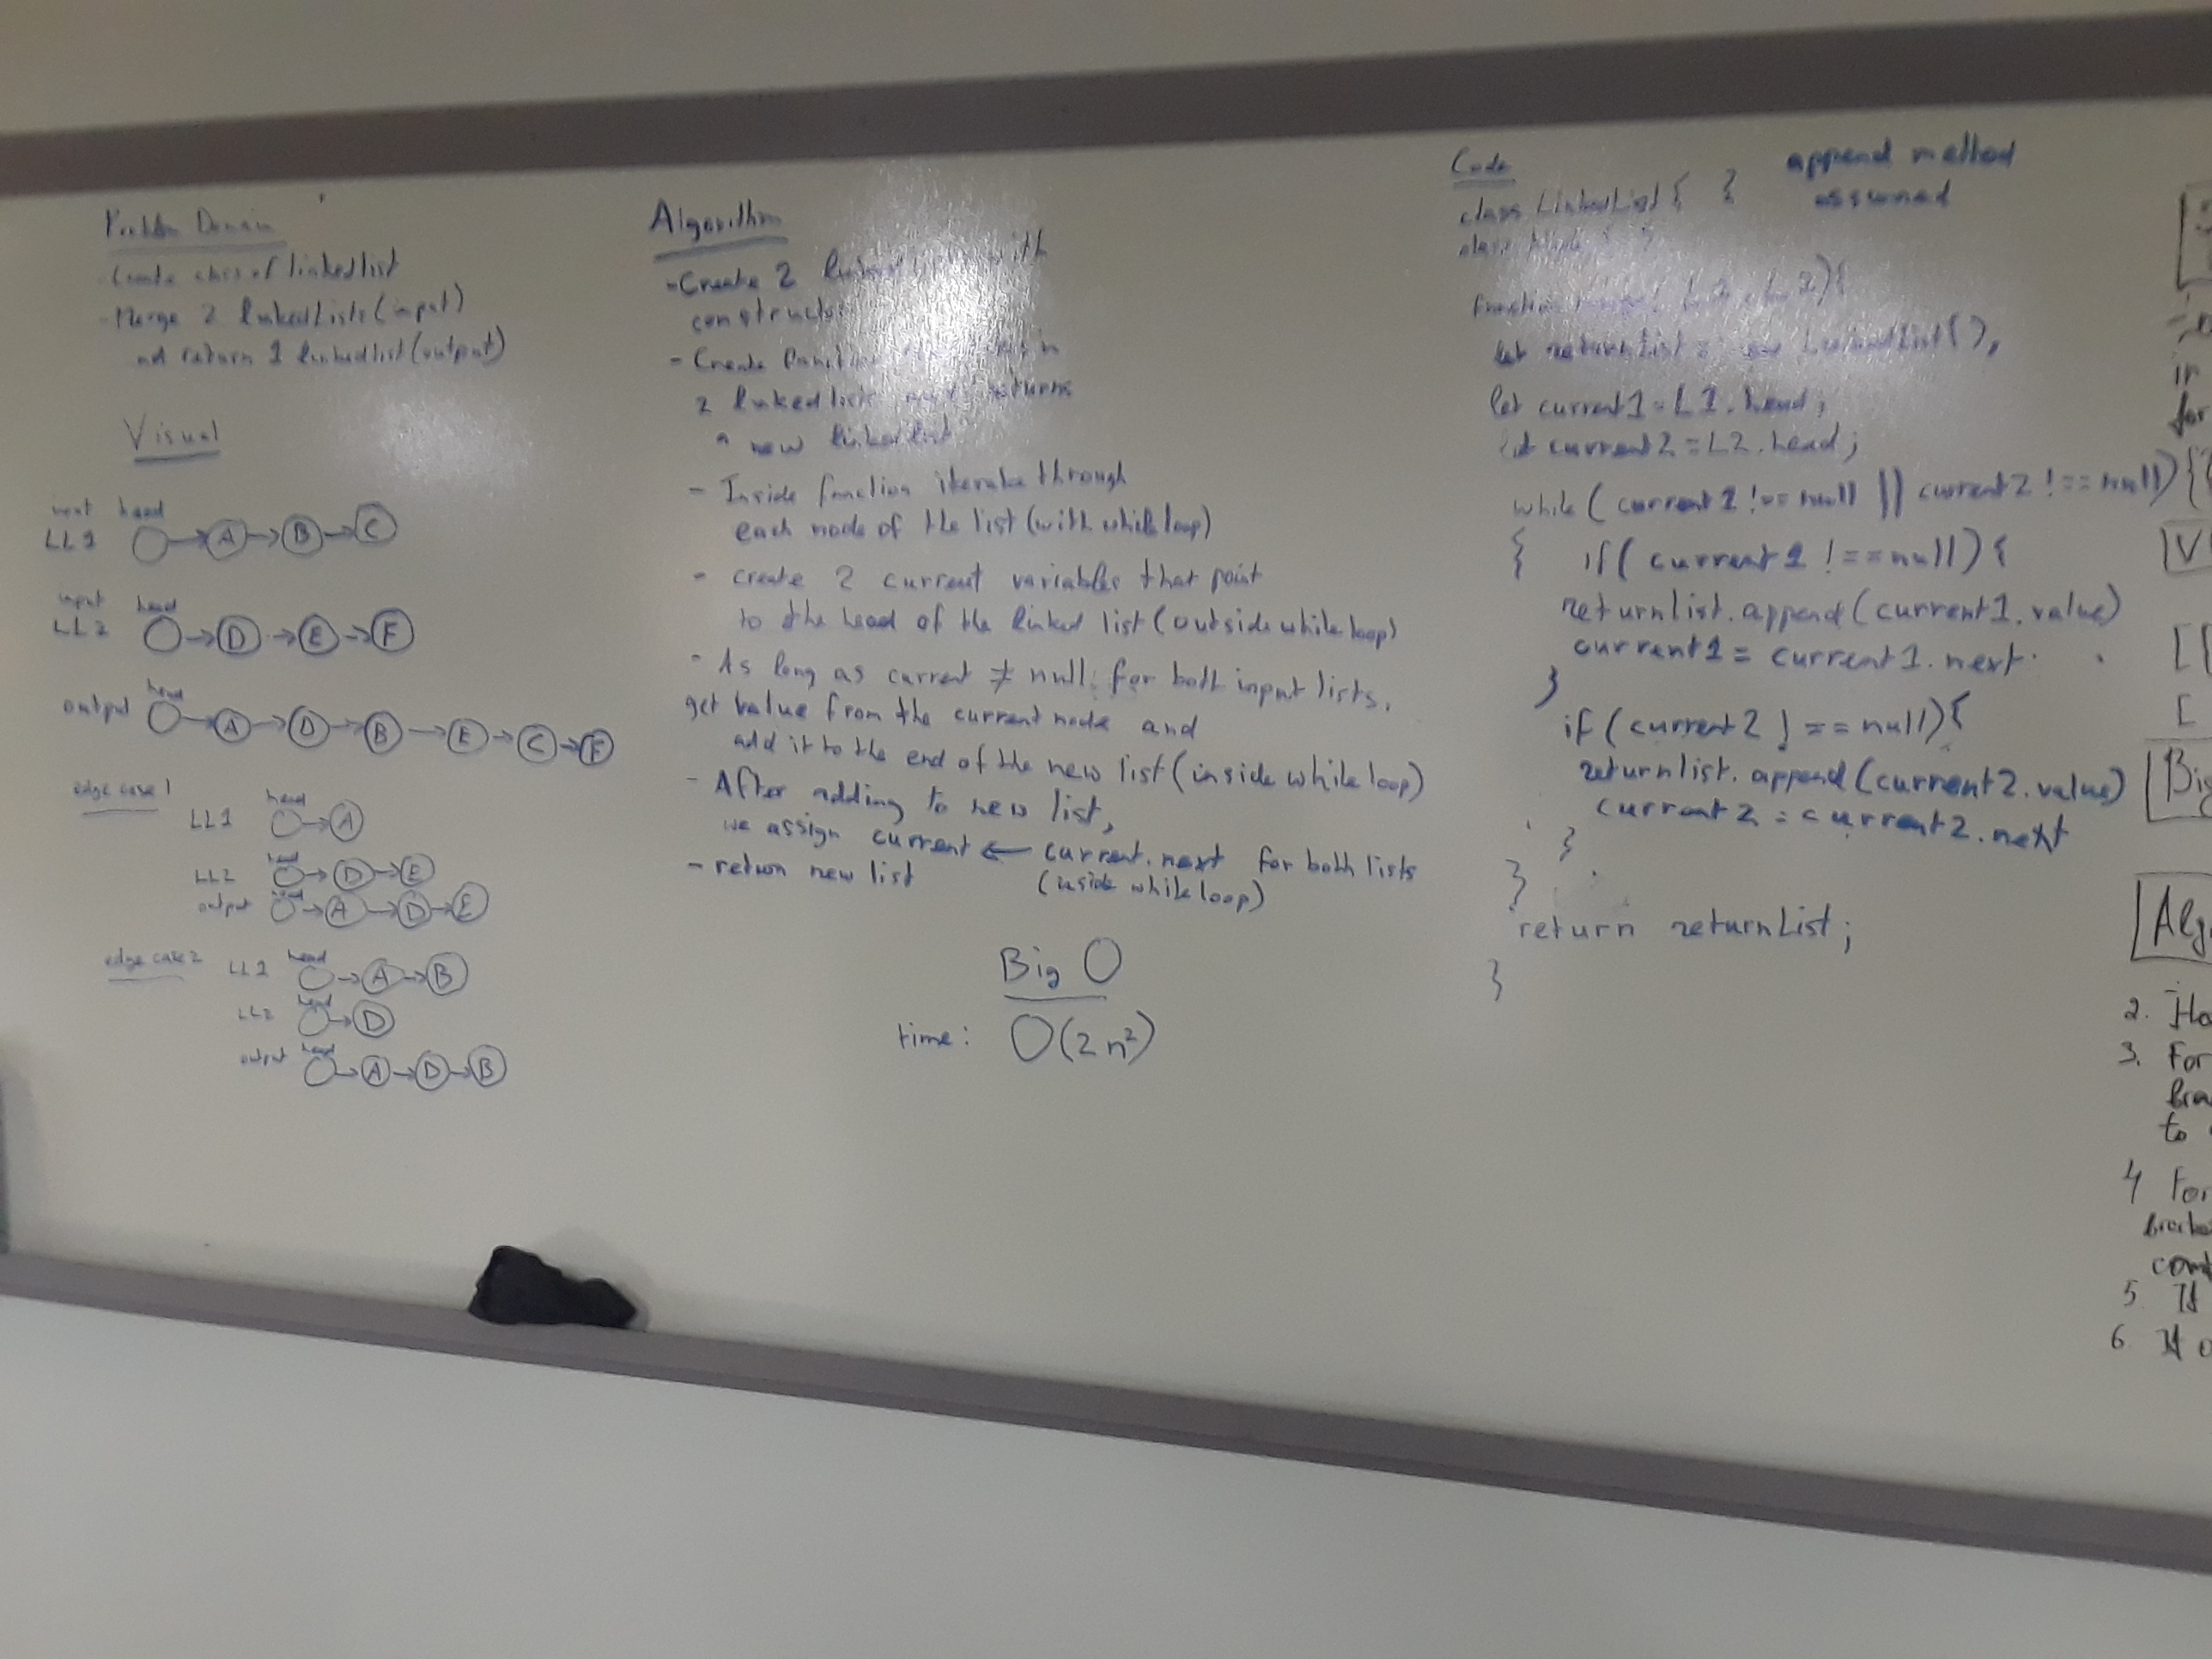 Problem Domain
- Create class of linkedlist
- Merge 2 linkedLists (input)
and return 1 linkedlist (output)
Visual
input head
LL1 A B C
input head
LL2 D E F
head
output A D B E C F
edge case 1
head
LL1 A
head
LL2 D E
head
output A D E
edge case 2
head
LL1 A B
head
LL2 D
head
output A D B
Algorithm
- Create 2 with
- Create
2 linkedlists and returns
a new linkedlist
- Inside function iterate through
each node of the list (with while loop)
- create 2 current variables that point
to the head of the linked list (outside while loop)
- As long as current ≠ null: for both input lists,
get value from the current node and
add it to the end of the new list (inside while loop)
- After adding to new list,
we assign current ← current.next for both lists
(inside while loop)
- return new list
Big O
time: O(2n²)
Code
append method
assumed
class LinkedList { }
class Node { }
function L2) {
let returnList = new LinkedList(),
let current1 = L1.head;
let current2 = L2.head;
while (current1 !== null || current2 !== null) {
{ if (current1 !== null) {
returnlist.append(current1.value)
current1 = current1.next
}
if (current2 !== null) {
returnlist.append(current2.value)
current2 = current2.next
}
}
return returnList;
}
in
for
V
[ [
[
Big
Alg
2.
3. For
to
4 For
5 If
6. If